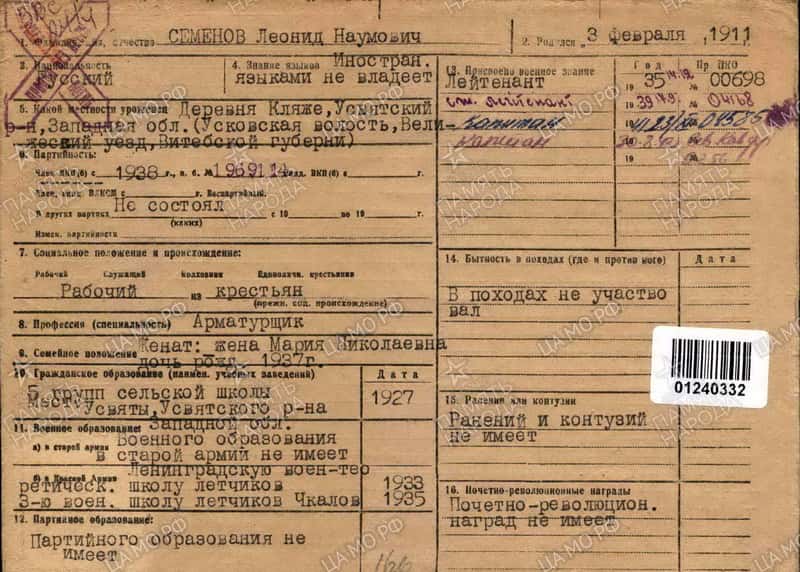 1. Фамилия, имя, отчество СЕМЕНОВ Леонид Наумович
2. Родился 3 февраля 1911
3. Национальность
Русский
4. Знание языков Иностран.
языками не владеет
5. Какой местности уроженец Деревня Кляже, Усмятский
р-н, Западная обл. (Усковская волость, Вели-
жеский уезд, Витебской губерни)
6. Партийность:
Член ВКП(б) с 1938 г., п. б. № 1969114 канд. ВКП(б) с г.
Член, канд. ВЛКСМ с г. Беспартийный.
В других партиях Не состоял с 19 по 19 г.
(каких)
Измен. партийности
7. Социальное положение и происхождение:
Рабочий Служащий Колхозник Единоличн. крестьянин
Рабочий из крестьян
(прежн. соц. происхождение)
8. Профессия (специальность) Арматурщик
9. Семейное положение Женат: жена Мария Николаевна
дочь рожг. 1937г.
10. Гражданское образование (наимен. учебных заведений) Дата
5 групп сельской школы 1927
Мест. Усвяты, Усвятского р-на
Западной обл.
11. Военное образование:
а) в старой армии Военного образования
в старой армий не имеет
б) в Красной Армии Ленинградскую воен-тео
ретическ. школу летчиков 1933
3-ю воен. школу летчиков Чкалов 1935
12. Партийное образование:
Партийного образования не
имеет
166
13. Присвоено военное звание Год Пр НКО
Лейтенант 1935 00698
ст. лейтенант 1939 04168
Капитан 19
Капитан 19
19
14. Бытность в походах (где и против кого) Дата
В походах не участво
вал
01240332
15. Ранения или контузии
Ранений и контузий
не имеет
16. Почетно-революционные награды
Почетно-революцион.
наград не имеет
ПАМЯТЬ НАРОДА
ЦАМО.РФ